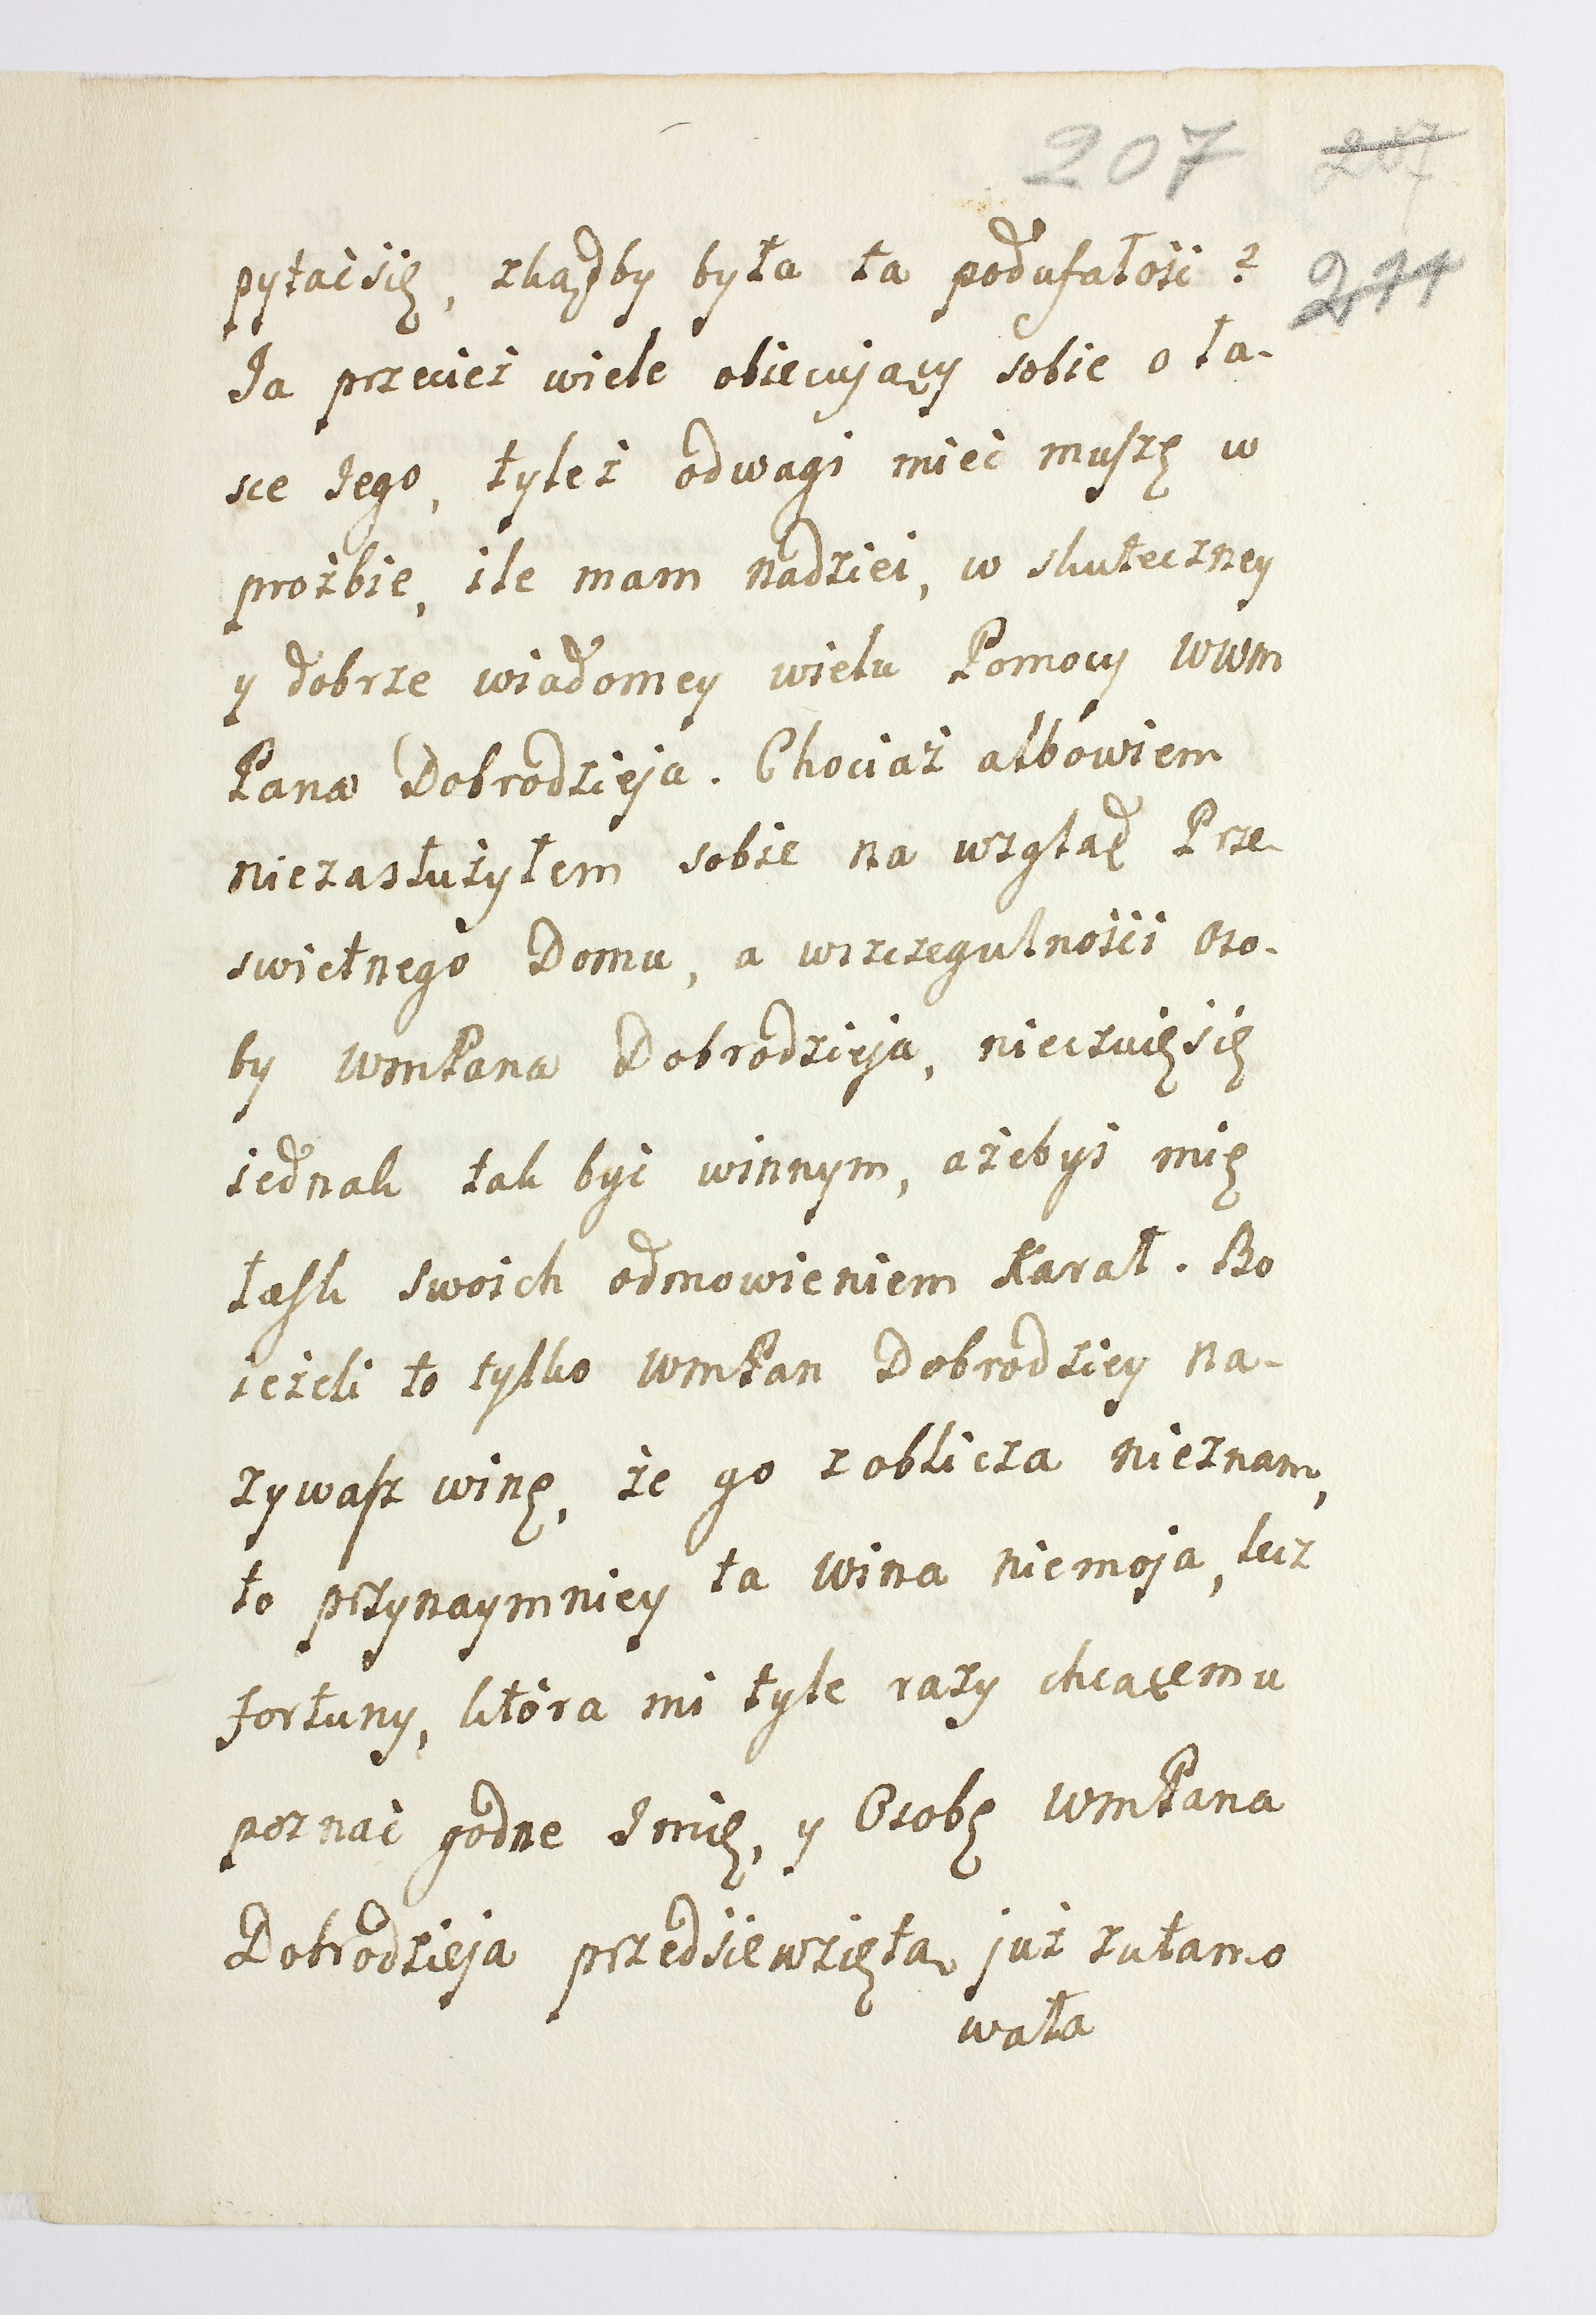 207 207
pytać się, zkądby była ta podufałość? 211
Ja przecież wiele obiecujący sobie o ła-
sce Jego, tyleż odwagi mieć muszę w
proźbie, ile mam nadziei, w skuteczney
y dobrze wiadomey wielu Pomocy WWM
Pana Dobrodzieja. Chociaż albowiem
niezasłużyłem sobie na wzgląd Prze-
swietnego Domu, a wszczegulności Oso-
by WMPana Dobrodzieja, nieczuię się
iednak tak być winnym, ażebyś mię
łask swoich odmowieniem Karał. Bo
ieżeli to tylko WMPan Dobrodziey na-
zywasz winę, że go zoblicza nieznam,
to przynaymniey ta wina niemoja, lecz
fortuny, która mi tyle razy chcącemu
poznać godne Imię, y Osobę WMPana
Dobrodzieja przedsiewzięta już zutamo
wała